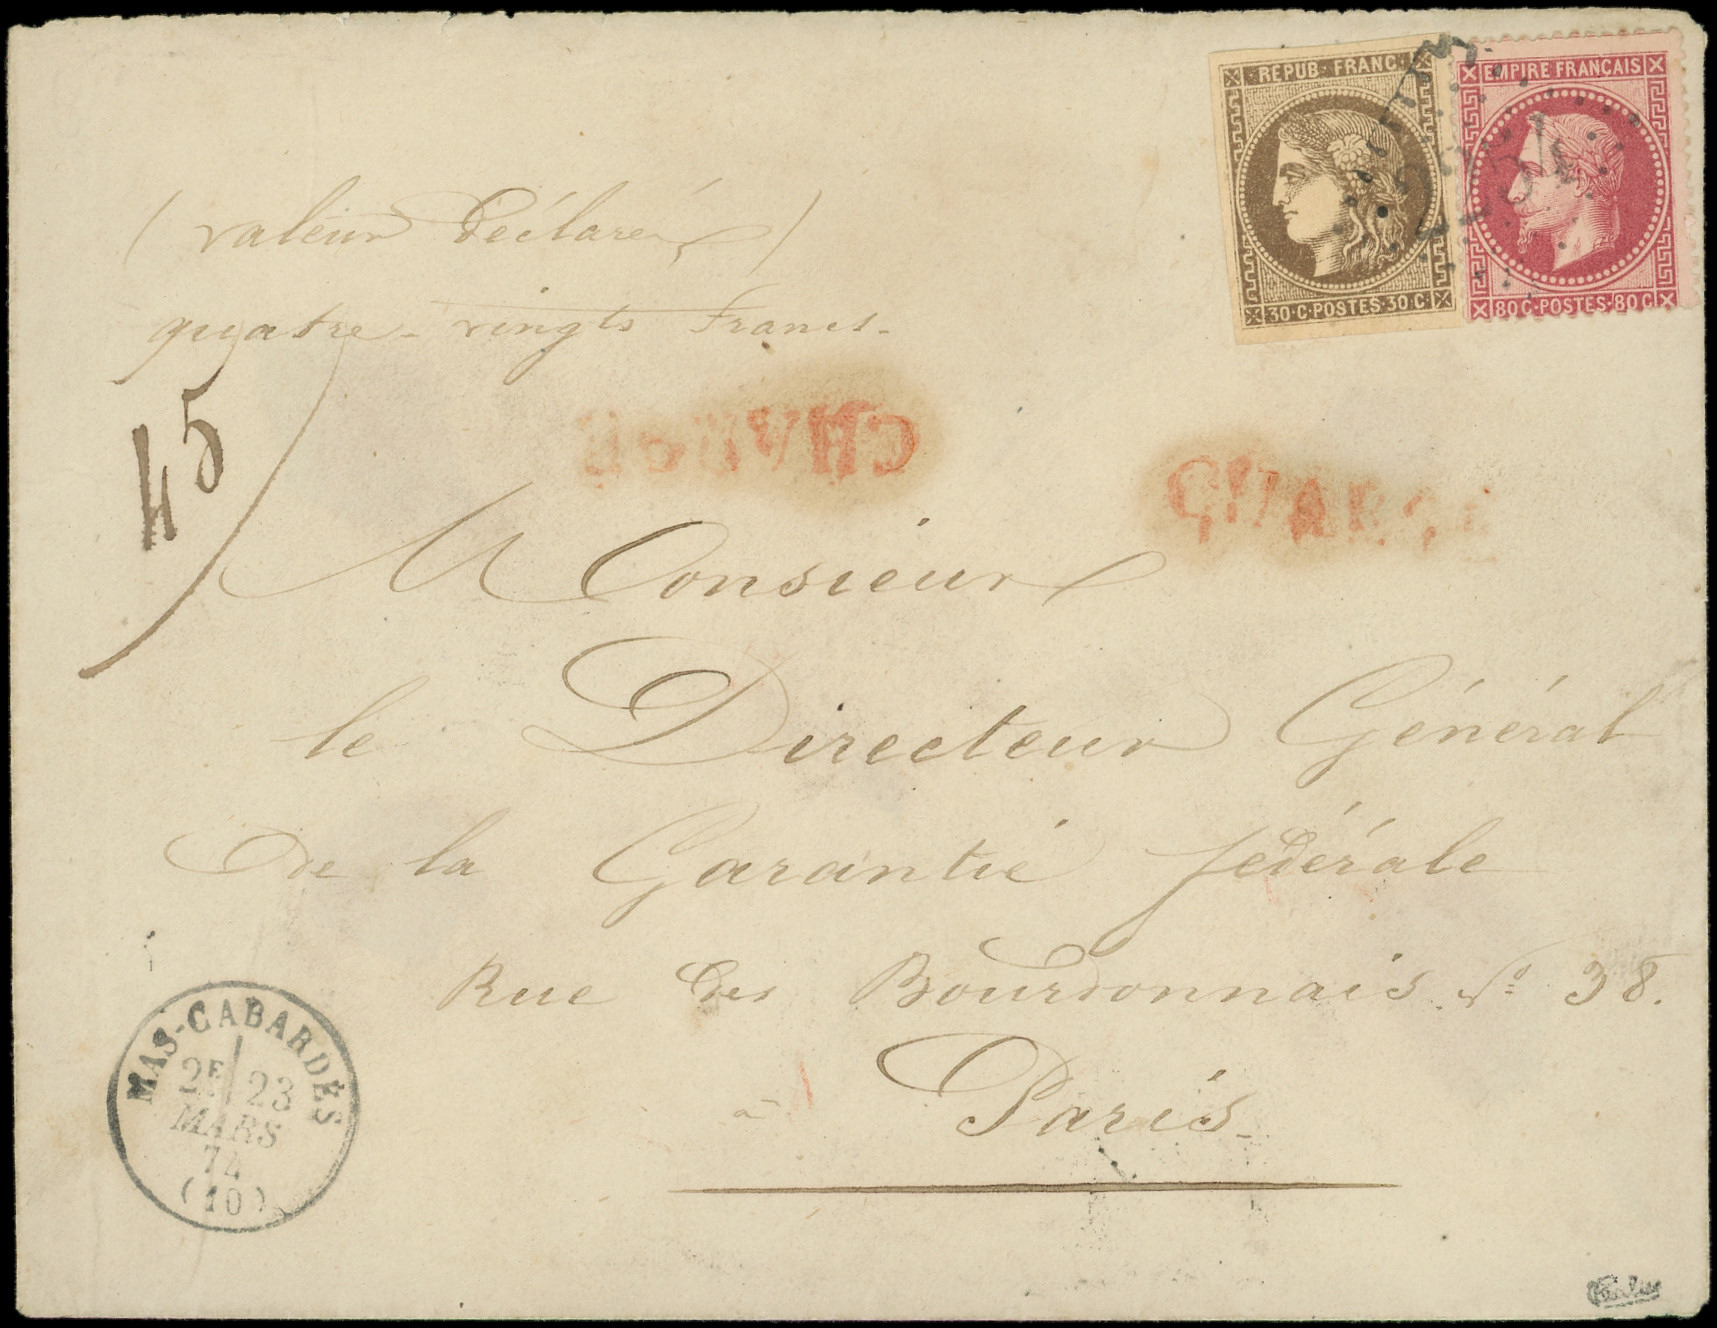 REPUB·FRANC·
30·C·POSTES·30·C·
EMPIRE FRANÇAIS
80C·POSTES·80C
(valeur déclarée)
quatre-vingts francs-
45
CHARGÉ
CHARGÉ
Monsieur
le Directeur Général
De la Garantie fédérale
Rue des Bourdonnais No 38.
à Paris
MAS-CABARDÈS
2E 23
MARS
74
(10)